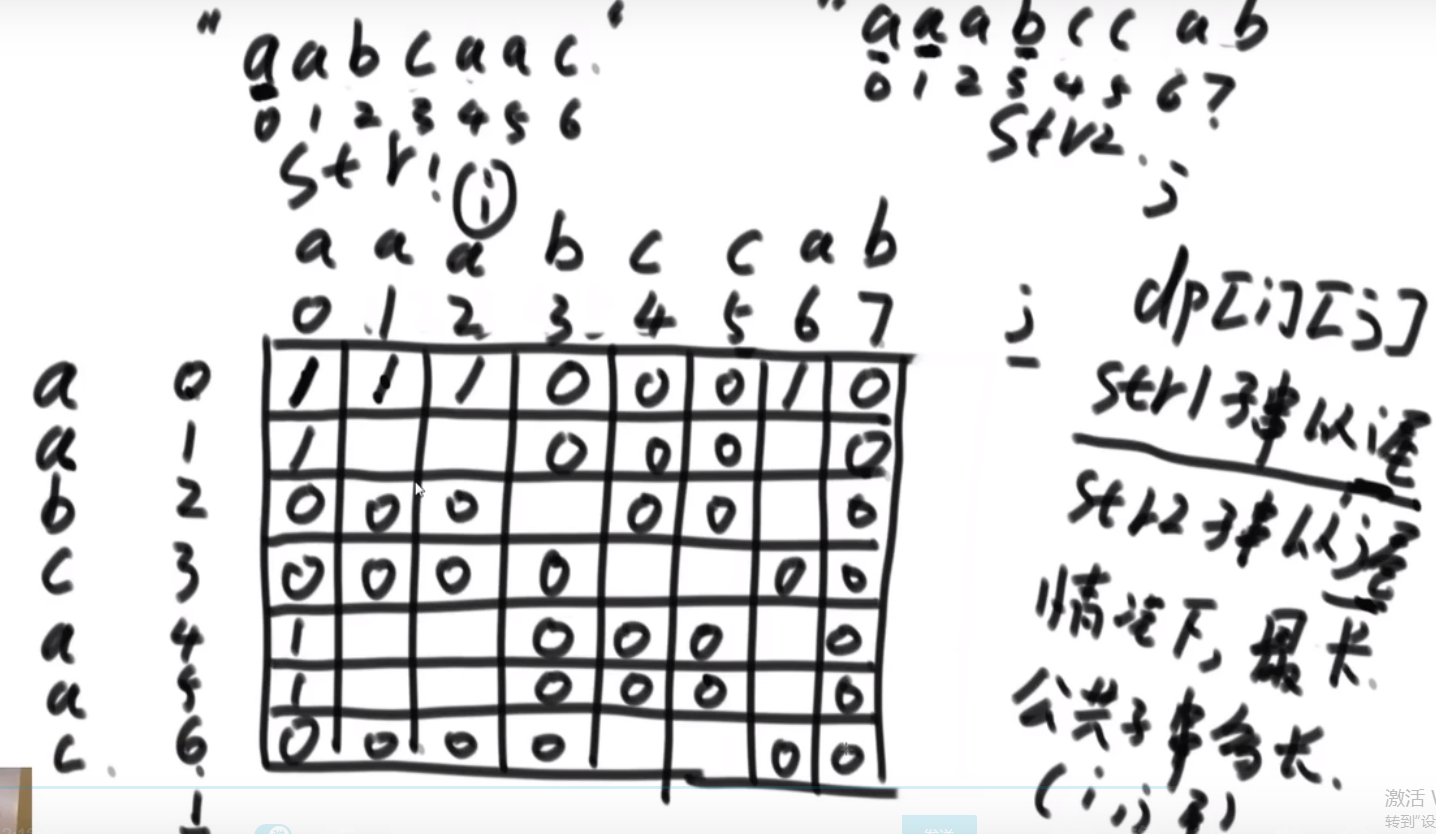 "aabcaac"
0 1 2 3 4 5 6
str1
i
"aaabccab"
0 1 2 3 4 5 6 7
str2
j
a a a b c c a b
0 1 2 3 4 5 6 7 j
a 0 1 1 1 0 0 0 1 0
a 1 1 0 0 0 0
b 2 0 0 0 0 0 0
c 3 0 0 0 0 0 0
a 4 1 0 0 0 0
a 5 1 0 0 0 0
c 6 0 0 0 0 0 0
i
dp[i][j]
str1子串以i尾
str2子串以j尾
情况下,最长
公共子串多长.
(i,j尾)
激活
转到"设